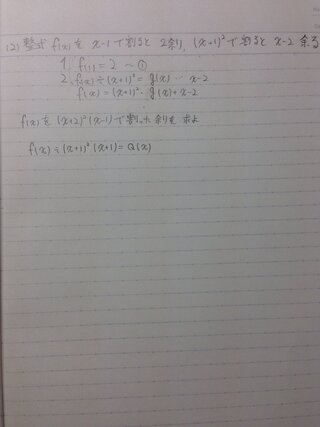 (2) 整式 f(x) を x-1で割ると 2余り, (x+1)²で割ると x-2 余る
1. f(1) = 2 ～ ①
2. f(x) ÷ (x+1)² = g(x) … x-2
f(x) = (x+1)²・g(x) + x-2
f(x) を (x+2)²(x-1)で割った 余りを 求よ
f(x) ÷ (x+1)²(x+1) = Q(x)